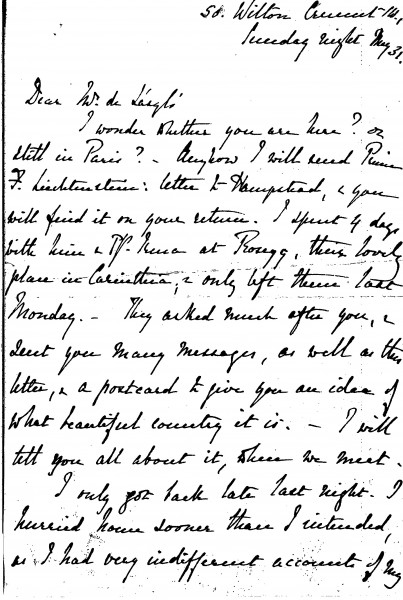 50. Wilton Crescent
Sunday night May 31.
Dear Mr. de László
I wonder whether you are here? or
still in Paris? - Anyhow I will send Prince
F. Liechtenstein: letter to Hampstead, & you
will find it on your return. I spent 4 days
with him & at Rosegg, their lovely
place in Carinthia, & only left them last
Monday. - They asked much after you, &
sent you many messages, as well as this
letter, & a postcard to give you an idea of
what beautiful country it is. - I will
tell you all about it, when we meet.
I only got back late last night. I
hurried home sooner than I intended,
as I had very indifferent accounts of my